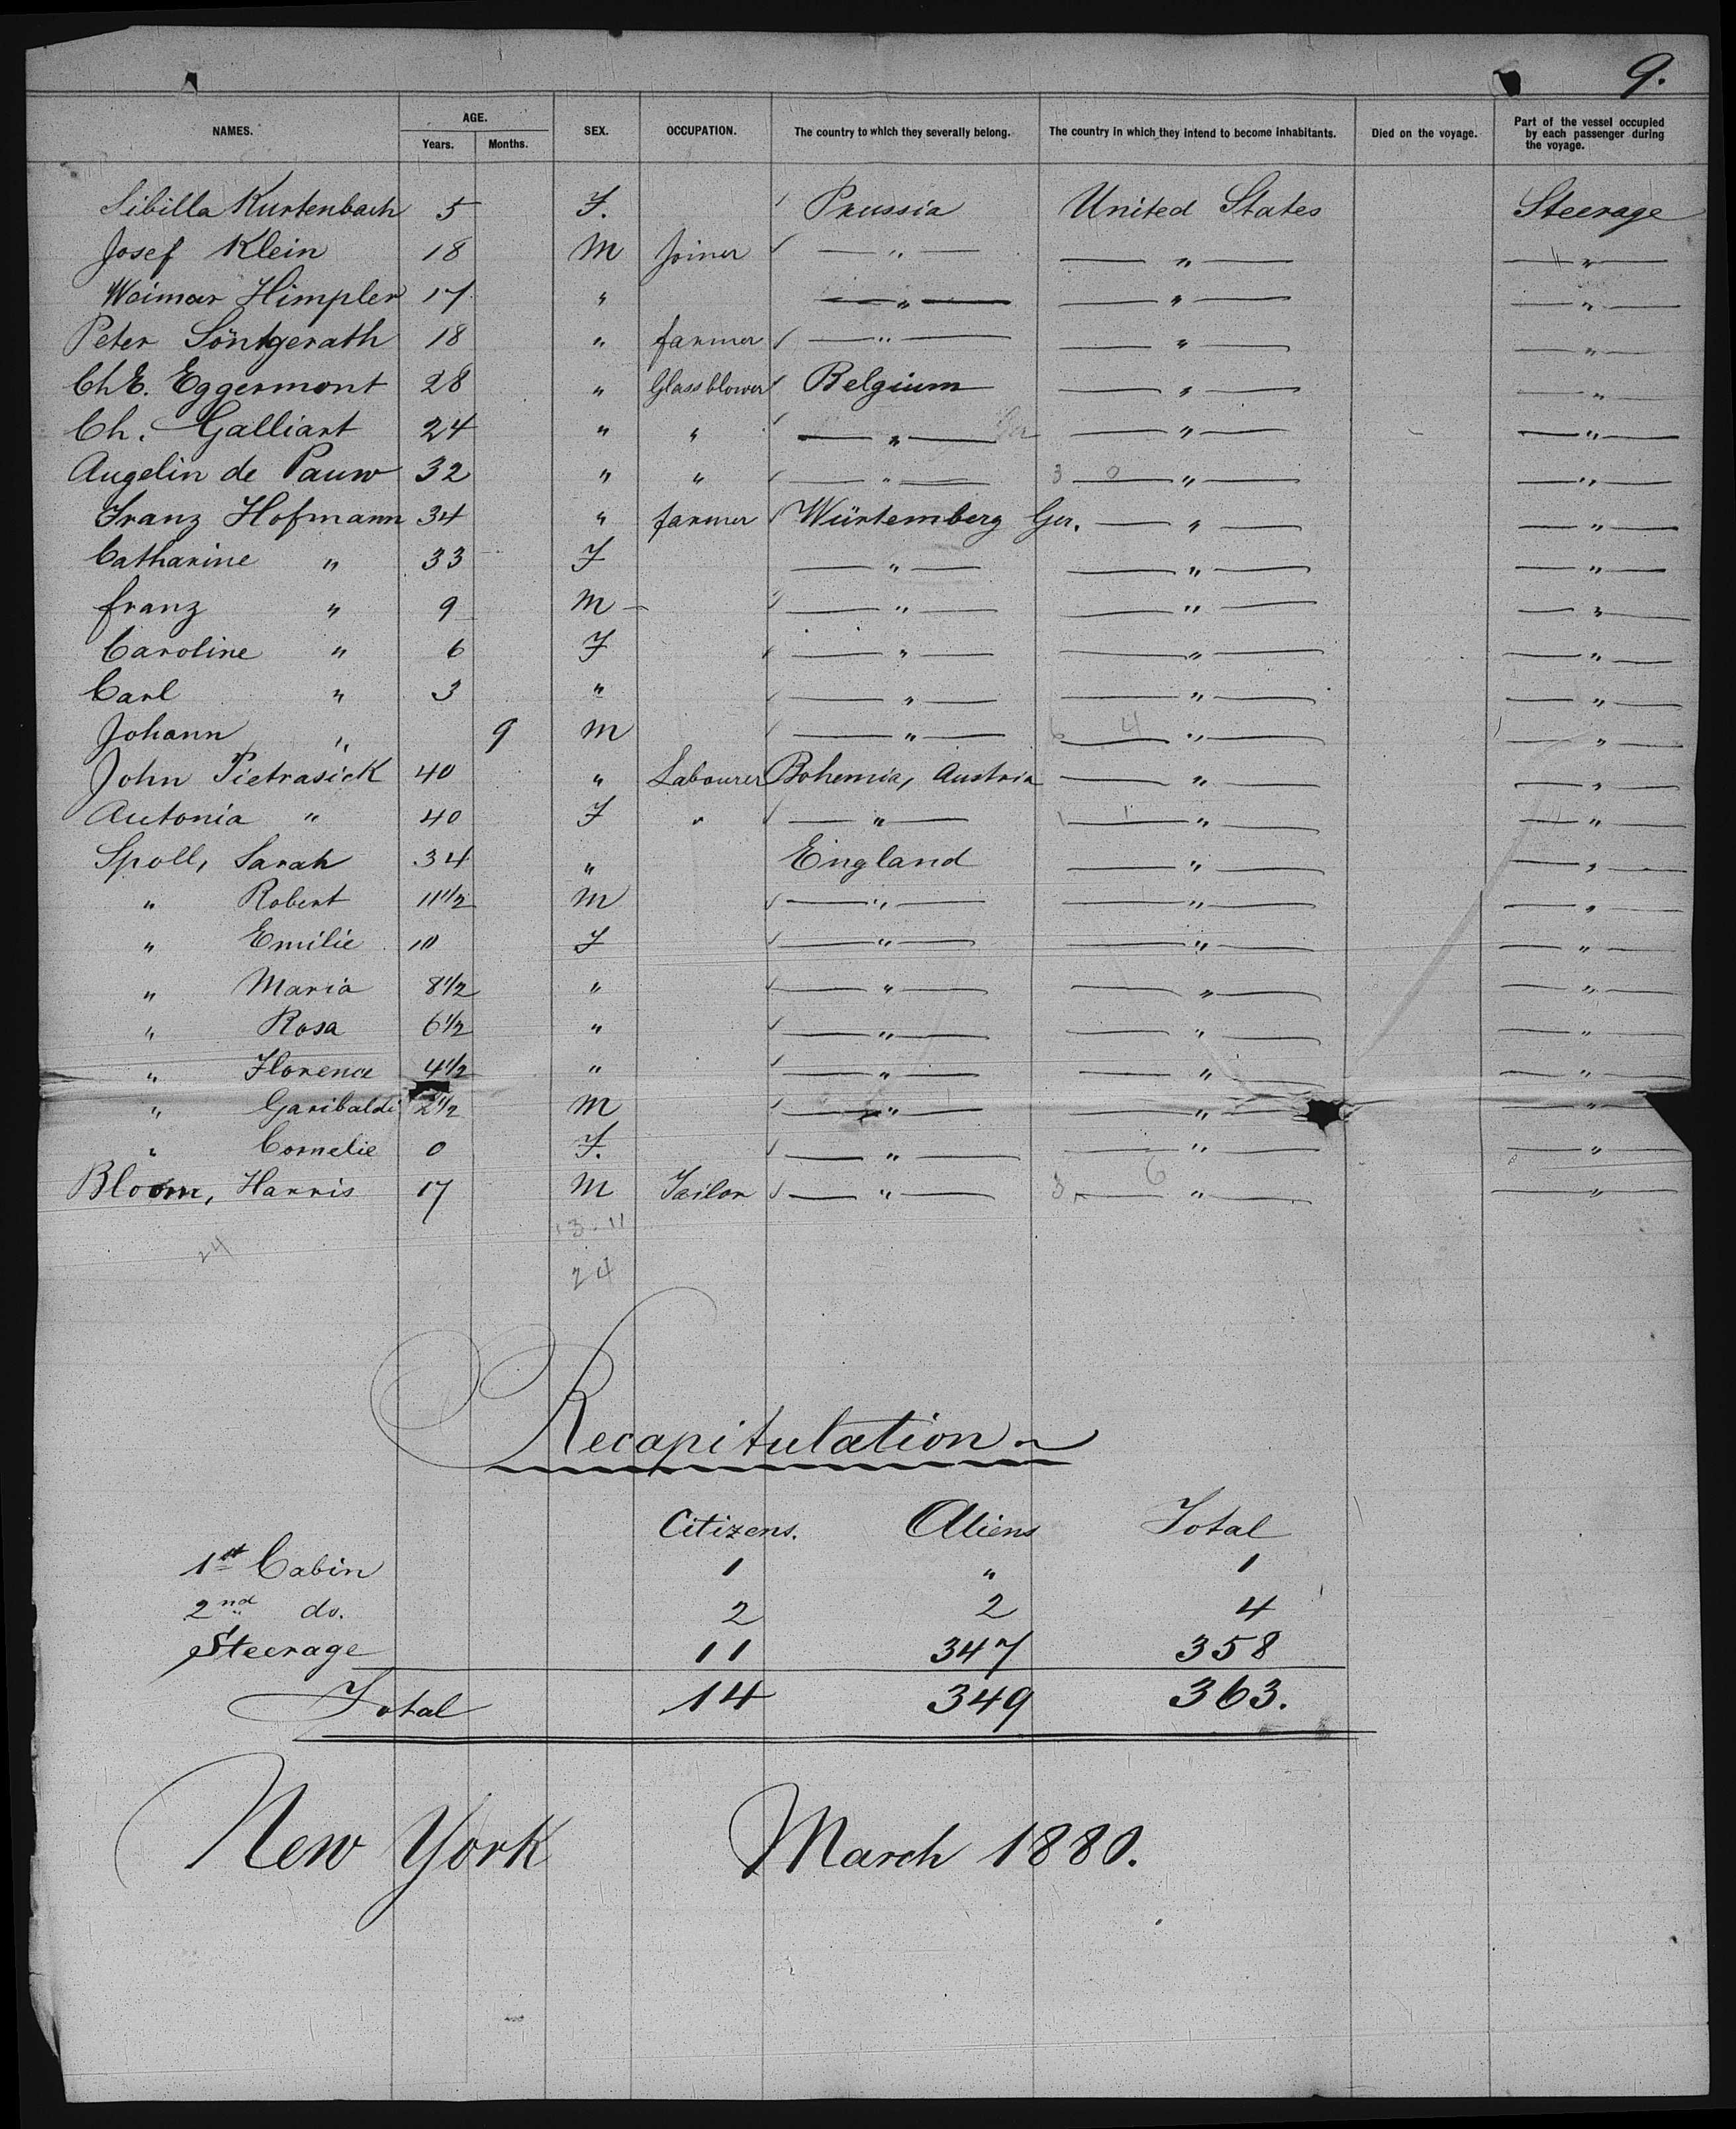 9.
NAMES. AGE. Years. Months. SEX. OCCUPATION. The country to which they severally belong. The country in which they intend to become inhabitants. Died on the voyage. Part of the vessel occupied by each passenger during the voyage.
Sibilla Kurtenbach 5 F. Prussia United States Steerage
Josef Klein 18 M Joiner " " "
Weimar Himpler 17 " " " "
Peter Söntgerath 18 " farmer " " "
Ch E. Eggermont 28 " Glassblower Belgium " "
Ch. Galliart 24 " " " " "
Augelin de Pauw 32 " " " 3 0 " "
Franz Hofmann 34 " farmer Würtemberg Ger. " "
Catharine " 33 F " " "
franz " 9 M " " "
Caroline " 6 F " " "
Carl " 3 " " " "
Johann " 9 M " 6 4 " "
John Pietrasick 40 " Labourer Bohemia, Austria " "
Autonia " 40 F " " 1 1 " "
Spoll, Sarah 34 " England " "
" Robert 11 1/2 M " " "
" Emilie 10 F " " "
" Maria 8 1/2 " " " "
" Rosa 6 1/2 " " " "
" Florence 4 1/2 " " " "
" Garibaldi 2 1/2 M " " "
" Cornelie 0 F. " " "
Bloom, Harris 17 M Tailor " 3 6 " "
24 13-11
24
Recapitulation
Citizens. Aliens Total
1st Cabin 1 " 1
2nd do. 2 2 4
Steerage 11 347 358
Total 14 349 363.
New York March 1880.